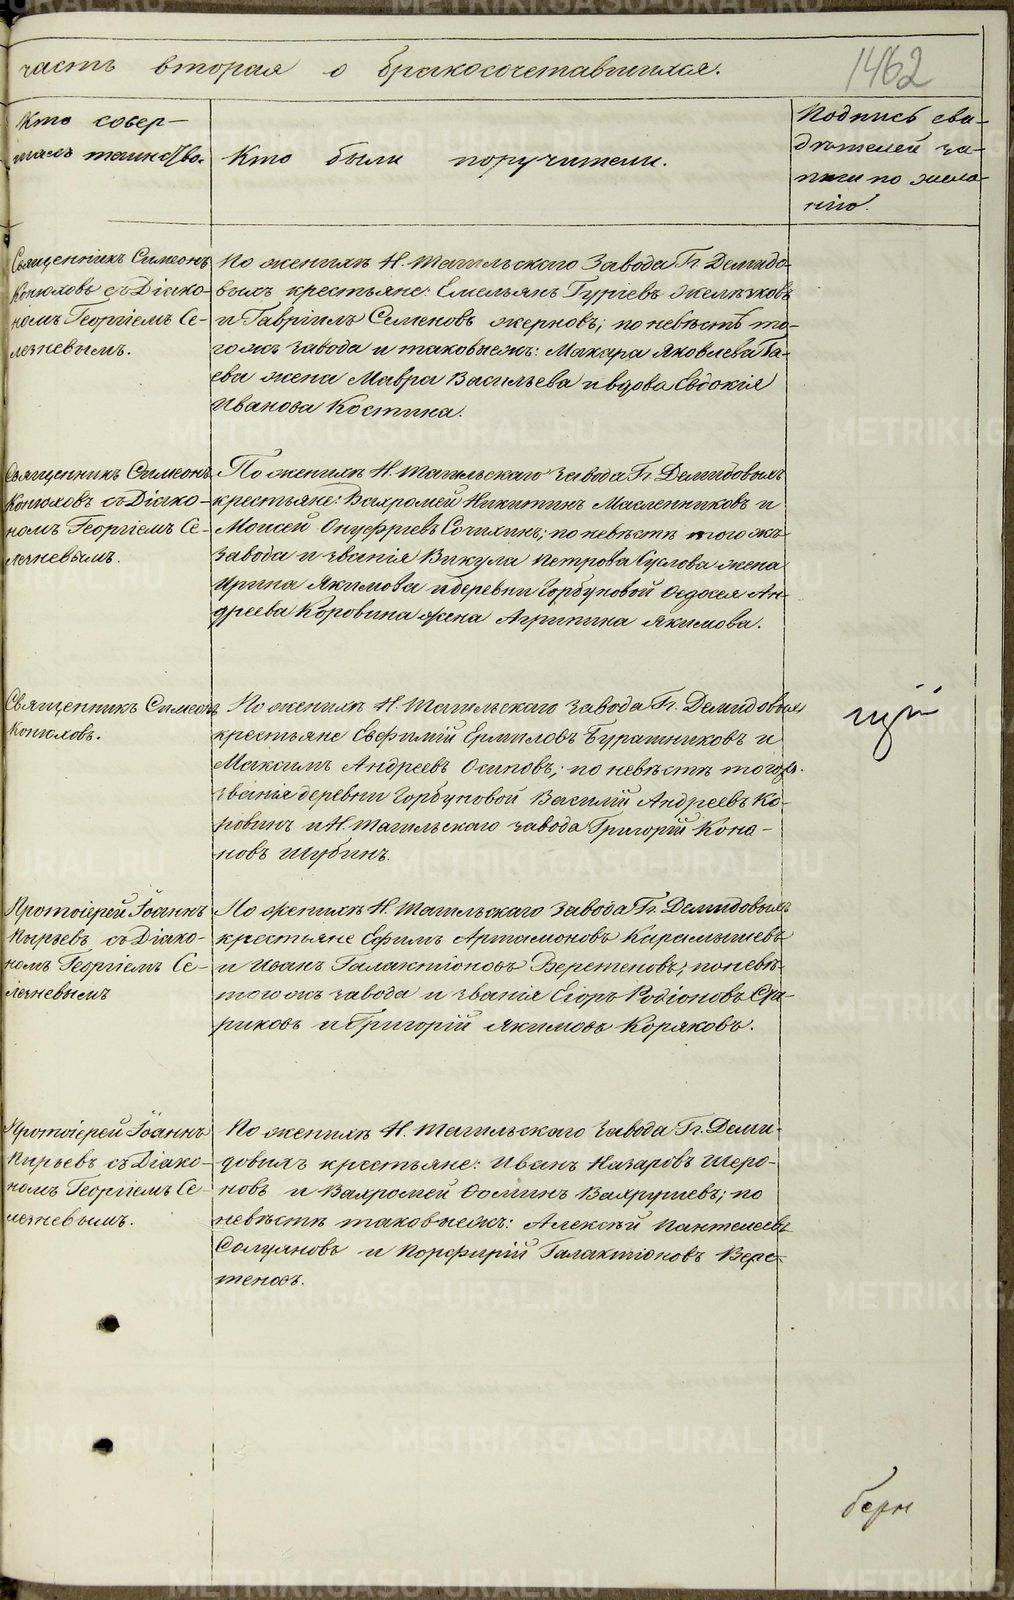 часть вторая о бракосочетавшихся.
1462
Кто совер-
шалъ таинство.
Кто были поручители.
Подпись сви-
дѣтелей за-
писи по жела-
нію.
Священникъ Симеонъ
Конюховъ съ Діако-
номъ Георгіемъ Се-
лезневымъ.
По женихѣ Н. Тагильскаго Завода Гг. Демидо-
выхъ крестьяне: Емельянъ Гуріевъ Желѣзковъ
и Гавріилъ Семеновъ Жерновъ; по невѣстѣ то-
гожъ завода и таковыежъ: Макара Яковлева Га-
ева жена Мавра Васильева и вдова Евдокія
Иванова Костина.
Священникъ Симеонъ
Конюховъ съ Діако-
номъ Георгіемъ Се-
лезневымъ.
По женихѣ Н. Тагильскаго завода Гг. Демидовыхъ
крестьяне: Вахромей Никитинъ Масленниковъ и
Моисей Онуфріевъ Сочихинъ; по невѣстѣ тогожъ
завода и званія Викула Петрова Суслова жена
Ирина Якимова и деревни Горбуновой Ѳедосея Ан-
дреева Коровина жена Агрипина Якимова.
Священникъ Симеонъ
Конюховъ.
По женихѣ Н. Тагильскаго завода Гг. Демидовыхъ
крестьяне Евфимій Ермиловъ Бурашниковъ и
Максимъ Андреевъ Осиповъ; по невѣстѣ тогожъ
званія деревни Горбуновой Василій Андреевъ Ко-
ровинъ и Н. Тагильскаго завода Григорій Коно-
новъ Шубинъ.
Протоіерей Іоаннъ
Пырьевъ съ Діако-
номъ Георгіемъ Се-
лезневымъ
По женихѣ Н. Тагильскаго завода Гг. Демидовыхъ
крестьяне Ефимъ Артамоновъ Карамышевъ
и Иванъ Галактіоновъ Веретеновъ; по невѣ-
тогожъ завода и званія Егоръ Родіоновъ Ста-
риковъ и Григорій Якимовъ Коряковъ.
Протоіерей Іоаннъ
Пырьевъ съ Діако-
номъ Георгіемъ Се-
лезневымъ.
По женихѣ Н. Тагильскаго завода Гг. Деми-
довыхъ крестьяне: Иванъ Назаровъ Шеро-
новъ и Вахромей Ѳоминъ Вахрушевъ; по
невѣстѣ таковыежъ: Алексѣй Пантелеевъ
Солуяновъ и Порфирій Галактіоновъ Вере-
теновъ.
METRIKI.GASO-URAL.RU